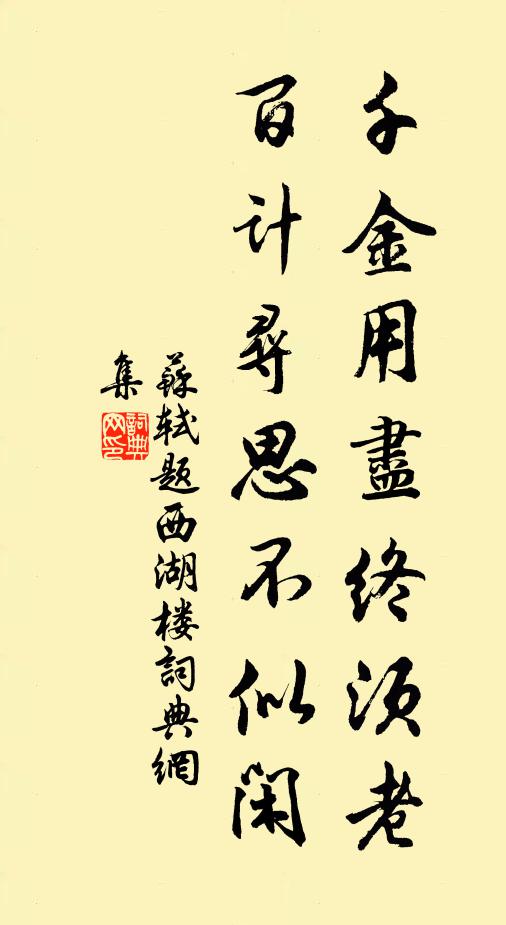 千金用盡終須老
百計尋思不似閑
蘇軾題西湖楼詞典網
集
詞典网印